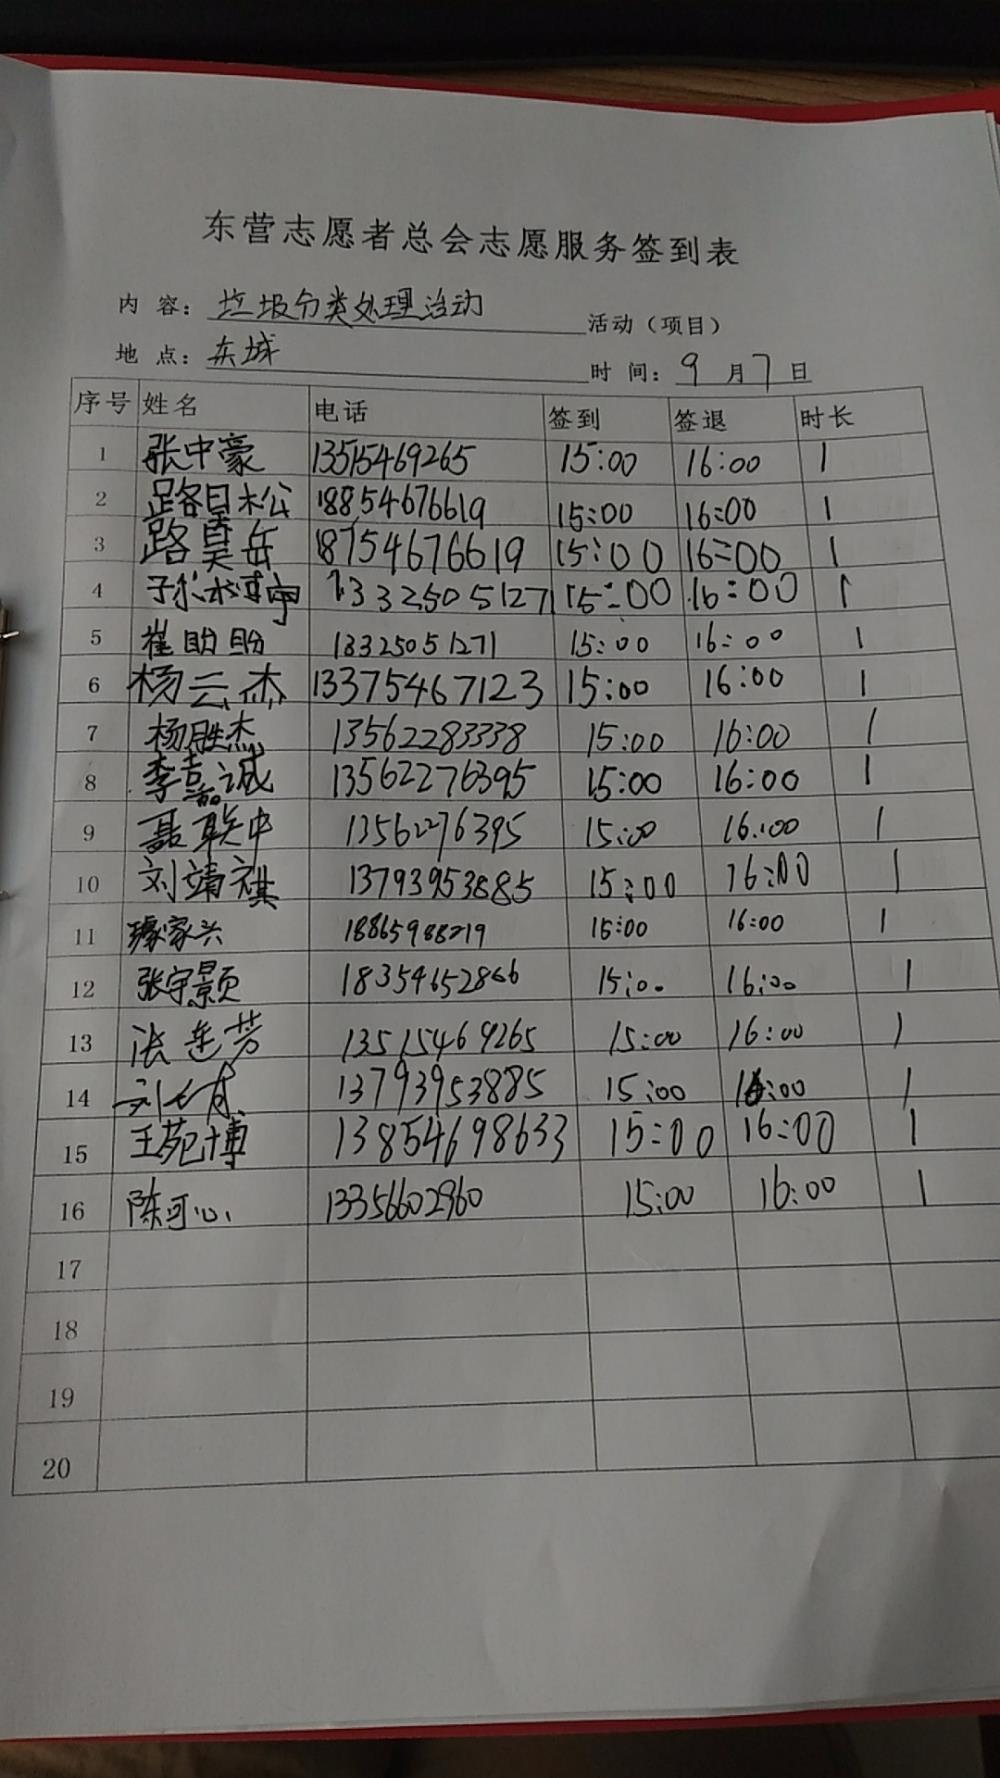 东营志愿者总会志愿服务签到表
内 容：垃圾分类处理活动 活动（项目）
地 点：东城 时 间：9月7日
序号 姓名 电话 签到 签退 时长
1 张中豪 13515469265 15:00 16:00 1
2 路昊松 18854676619 15:00 16:00 1
3 路昊岳 18754676619 15:00 16:00 1
4 13325051271 15:00 16:00 1
5 崔盼盼 13325051271 15:00 16:00 1
6 杨云杰 13375467123 15:00 16:00 1
7 杨胜杰 13562283338 15:00 16:00 1
8 李嘉诚 13562276395 15:00 16:00 1
9 聂联中 13562276395 15:00 16:00 1
10 刘靖祺 13793953885 15:00 16:00 1
11 家兴 18865988219 15:00 16:00 1
12 张宇颢 18354652866 15:00 16:00 1
13 张连芳 13515469265 15:00 16:00 1
14 刘 13793953885 15:00 16:00 1
15 王苑博 13854698633 15:00 16:00 1
16 陈可心 13356602960 15:00 16:00 1
17
18
19
20